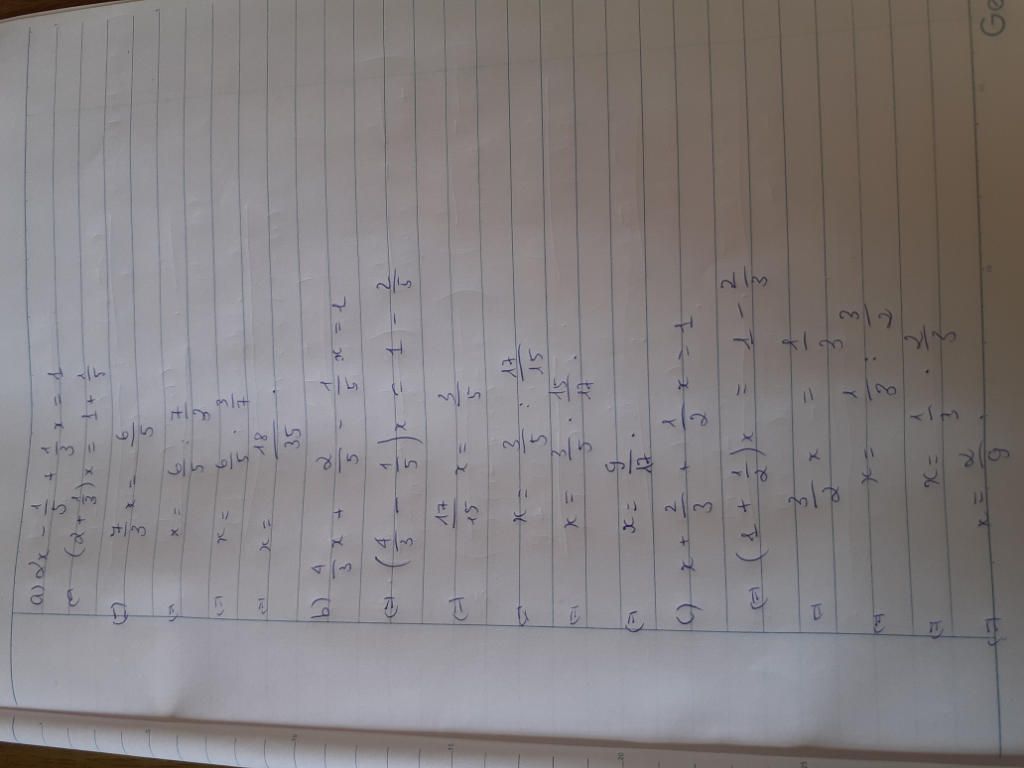 a) 2x - 1/5 + 1/3 x = 1
(=) (2 + 1/3)x = 1 + 1/5
(=) 7/3 x = 6/5
(=) x = 6/5 : 7/3
(=) x = 6/5 . 3/7
(=) x = 18/35.
b) 4/3 x + 2/5 - 1/5 x = 1
(=) (4/3 - 1/5)x = 1 - 2/5
(=) 17/15 x = 3/5
(=) x = 3/5 : 17/15
(=) x = 3/5 . 15/17.
(=) x = 9/17.
c) x + 2/3 + 1/2 x = 1
(=) (1 + 1/2)x = 1 - 2/3
(=) 3/2 x = 1/3
(=) x = 1/3 : 3/2
(=) x = 1/3 . 2/3
(=) x = 2/9.
Ge